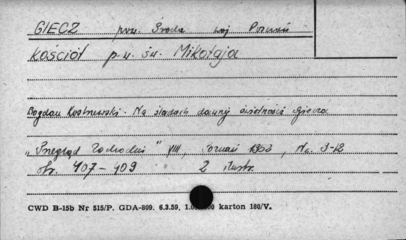 GIECZ pow. Środa woj. Poznań
Kościół p.w. św. Mikołaja
Bogdan Kostrzewski. Na śladach dawnej świetności Giecza
"Przegląd Zachodni" VIII, Poznań 1952, Nr. 9-12
str. 407-409 2 ilustr.
CWD B-15b Nr 515/P. GDA-809. 6.3.59. karton 180/V.